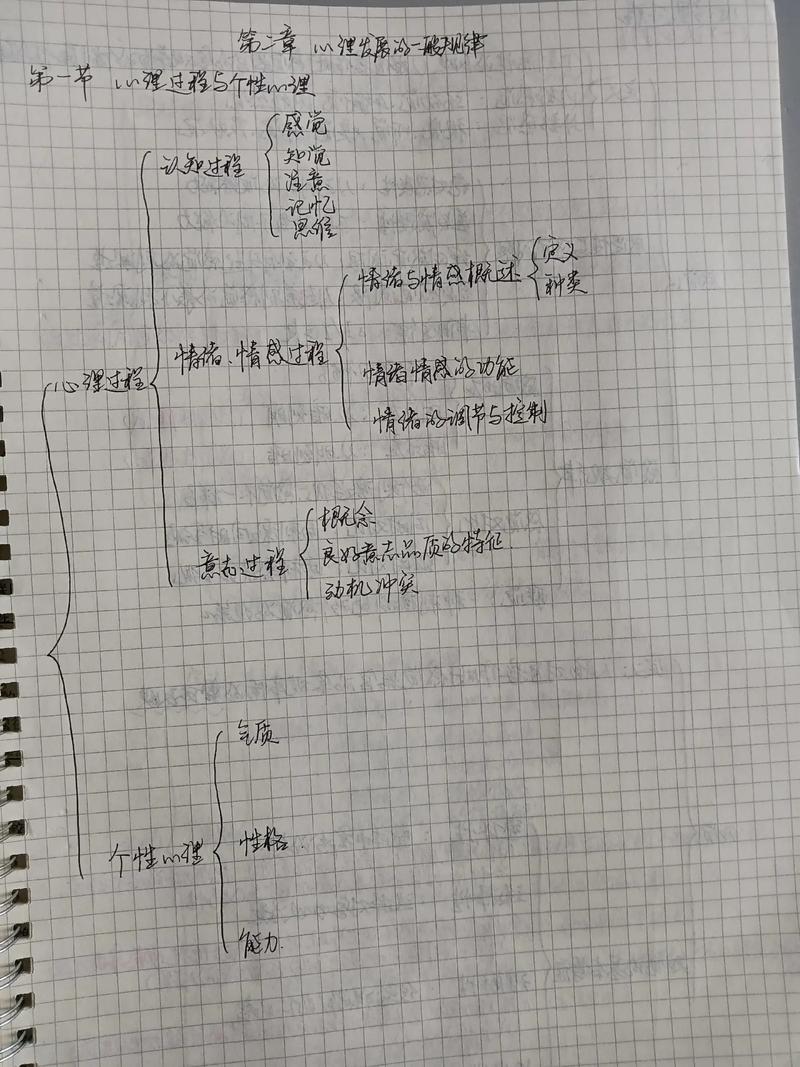 第二章 心理发展的一般规律
第一节 心理过程与个性心理
心理过程
认知过程
感觉
知觉
注意
记忆
思维
情绪、情感过程
情绪与情感概述
定义
种类
情绪情感的功能
情绪的调节与控制
意志过程
概念
良好意志品质的特征.
动机冲突
个性心理
气质
性格.
能力.